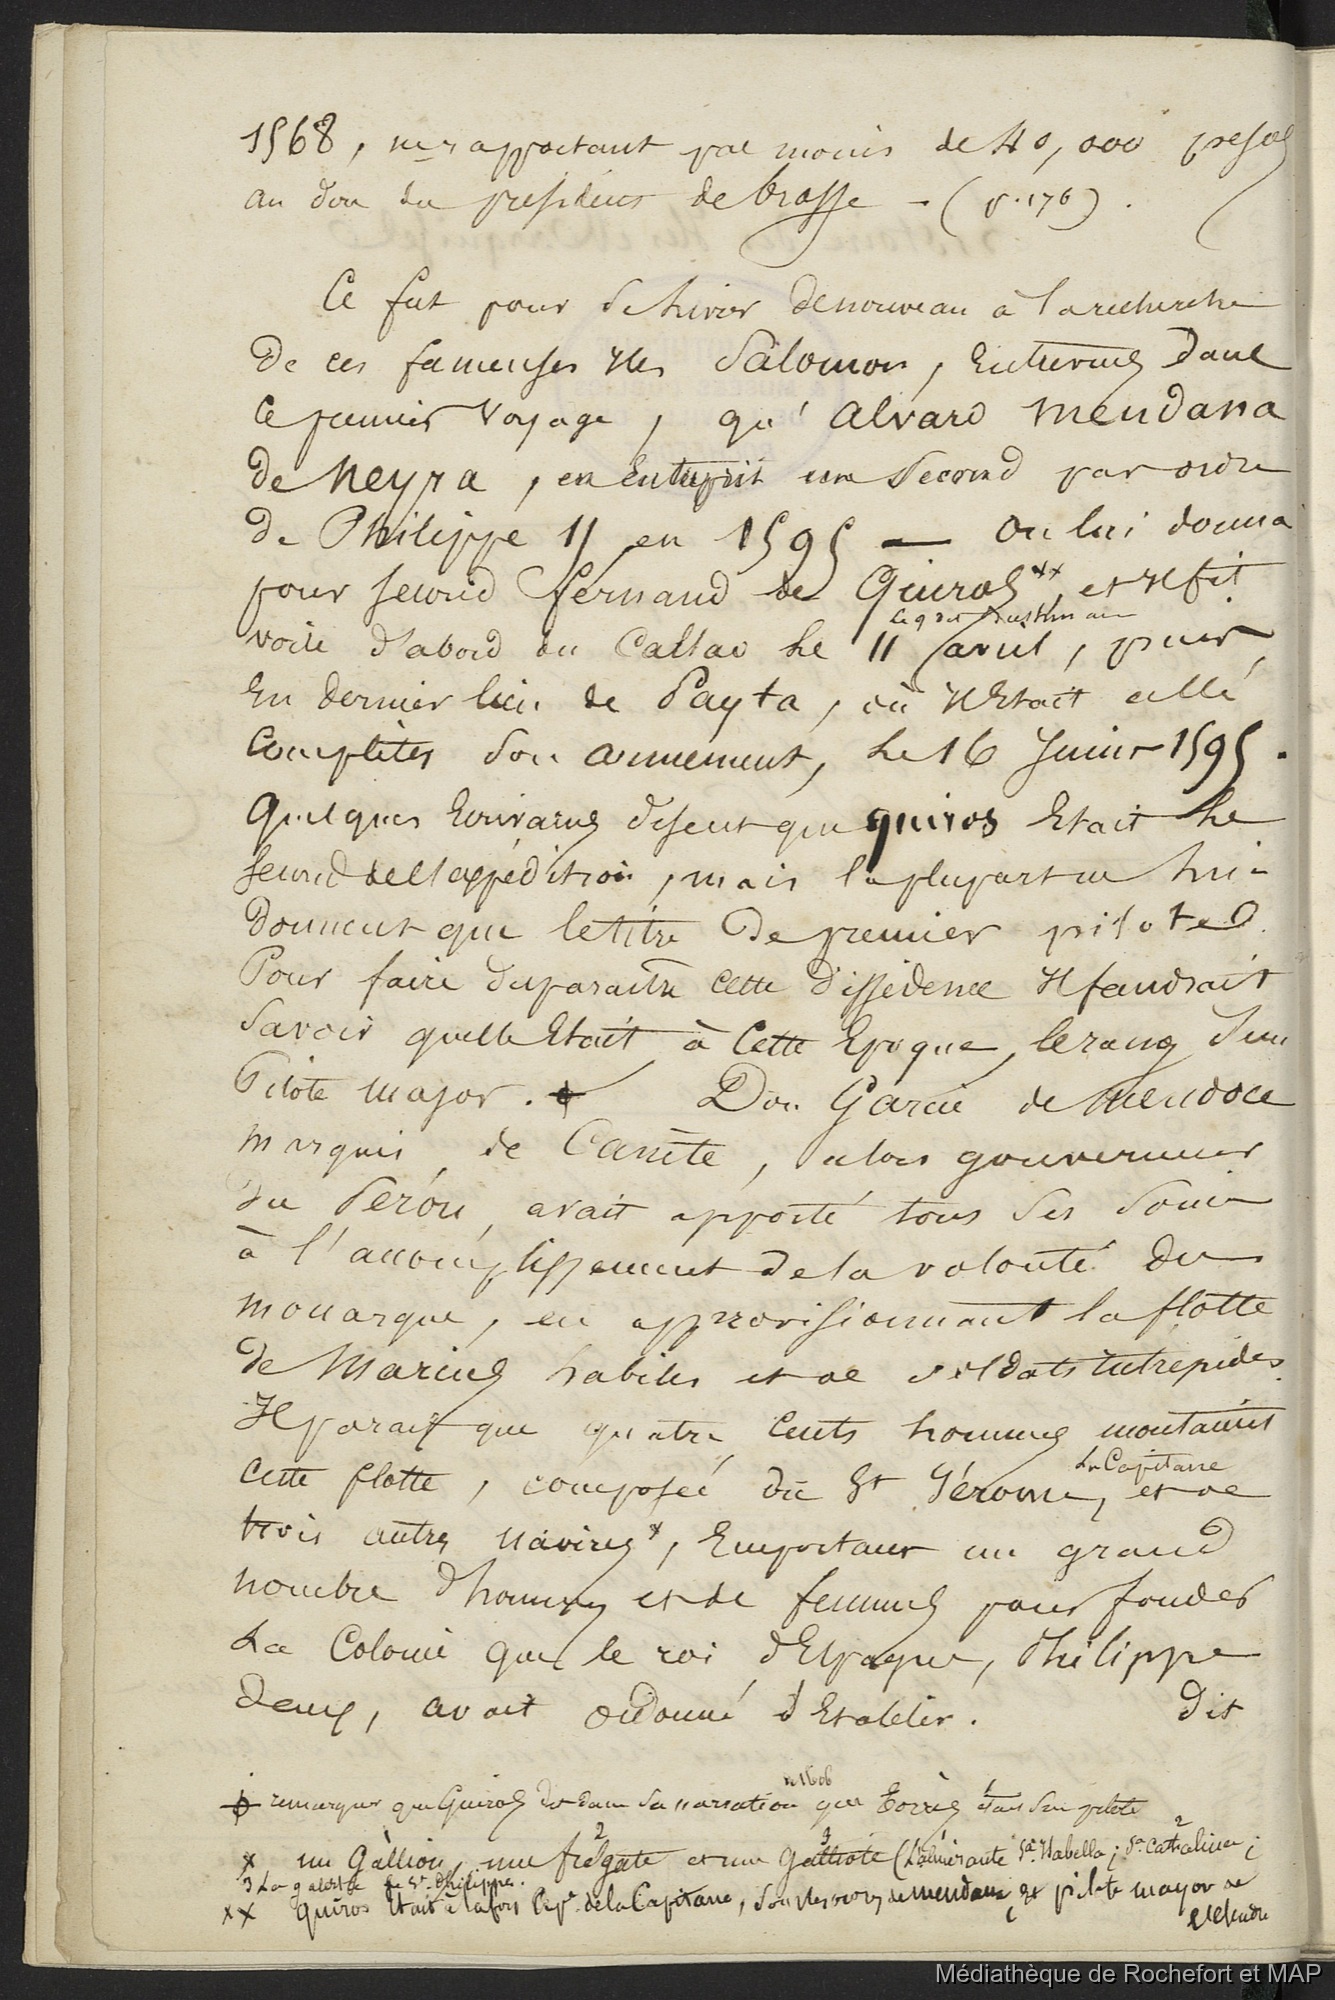 1568, n'en rapportant pas moins de 40,000 pesos
au dire du président de brosse - (p. 176).
Ce fut pour se livrer denouveau à la recherche
De ces fameuses Iles Salomon, Entrevues dans
ce premier voyage, qu'Alvaro Mendana
de Neyra, en Entreprit un Second par ordre
de Philippe II en 1595 — On lui donna
pour second fernand de Quiros xx, et Il fit
voile d'abord du Callao le 11 avril, puis,
En dernier lieu de Payta, où Il Etait allé
Completter Son armement, le 16 Juin 1595.
Quelques Ecrivains disent que quiros Etait le
second de l'expédition, mais la plupart ne lui
donnent que le titre De premier pilote.
Pour faire disparaitre cette dissidence Il faudrait
Savoir quelle Etait à Cette Epoque, le rang d'un
Pilote major. Don Garcie de Mendoce
marquis de Canete, alors gouverneur
du Pérou, avait apporté tous ses Soins
à l'accomplissement de la volonté du
monarque, en approvisionnant la flotte
de Marins habiles et de soldats intrépides.
Il parait que quatre Cents hommes montaient
La Capitane
cette flotte, composée du St Jérome, et de
trois autres navires x, Emportant un grand
nombre d'hommes et de femmes pour fonder
La Colonie que le roi d'Espagne, Philippe
deux, avait ordonné d'Etablir. Dit
en 1606
remarquer que Quiros dit dans sa narration que Torrès était Son pilote
x un Gallion, une frégate 2 et une Galliote 3 (L'almirante Sa. Isabella; Sa. Catalina 2;
3 La galiotte le St. Philippe.
xx Quiros Etait à la fois Cape. de la Capitane, Sous les ordres de Mendana, et pilote mayor de
l'Escadre
Médiathèque de Rochefort et MAP